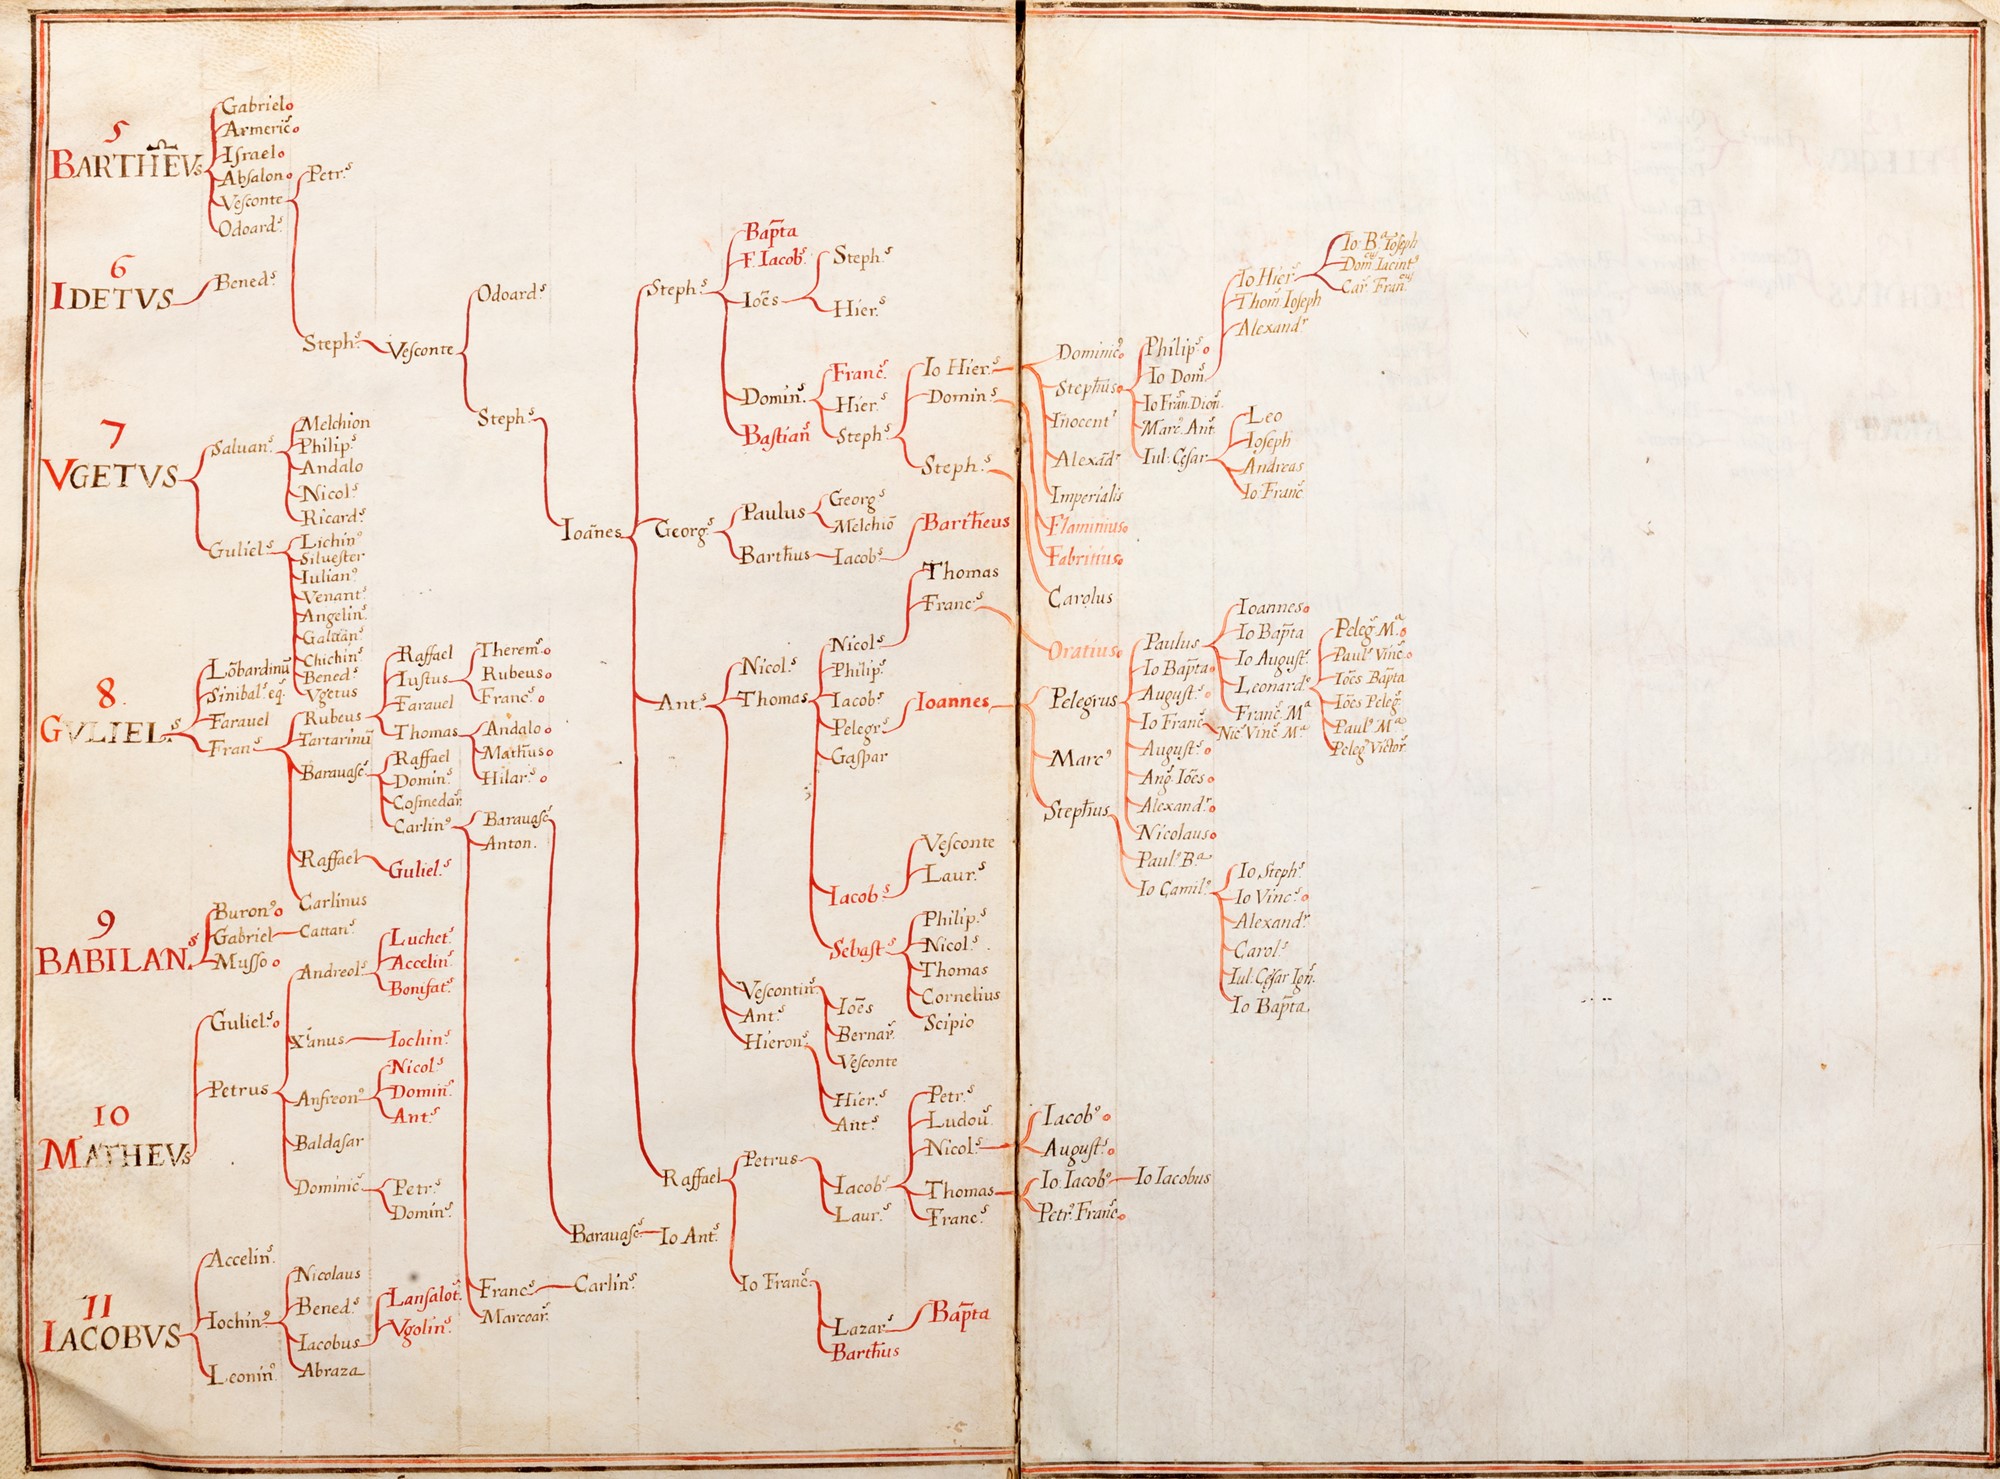 5
BARTHEVs
Gabriel
Armericˢ
Israel
Absalon
Vesconte
Odoardˢ
Petrˢ
Stephˢ
Vesconte
Odoardˢ
Stephˢ
Ioānes
6
IDETVS
Benedˢ
7
VGETVS
Saluanˢ
Melchion
Philipˢ
Andalo
Nicolˢ
Ricardˢ
Gulielˢ
Lichinº
Siluester
Iulianº
Venantˢ
Angelinˢ
Galvānˢ
Chichinˢ
Benedˢ
Vgetus
8
GVLIELˢ
Lōbardinū
Sinibalˢ eq.
Farauel
Franˢ
Rubeus
Tartarinū
Barauascˢ
Raffael
Carlinus
Raffael
Iustus
Farauel
Thomas
Theremˢ
Rubeus
Francˢ
Andalo
Mathūs
Hilarˢ
Raffael
Dominˢ
Cosmedar
Carlinº
Barauascˢ
Anton.
Francˢ
Marcoarˢ
Carlinˢ
Barauascˢ
Io Antˢ
Gulielˢ
9
BABILANˢ
Buronº
Gabriel
Musso
Cattanˢ
10
MATHEVs
Gulielˢ
Petrus
Andreolˢ
Luchetˢ
Accelinˢ
Bonifatˢ
Xʳanus
Iochinˢ
Anfreonº
Nicolˢ
Dominˢ
Antˢ
Baldasar
Dominicˢ
Petrˢ
Dominˢ
11
IACOBVS
Accelinˢ
Iochinº
Leoninº
Nicolaus
Benedˢ
Iacobus
Abraza
Lansalotˢ
Vgolinˢ
Stephˢ
Bap̄ta
F. Iacobˢ
Ioēs
Stephˢ
Hierˢ
Dominˢ
Francˢ
Hierˢ
Stephˢ
Bastianˢ
Io Hierˢ
Dominˢ
Stephˢ
Georgˢ
Paulus
Georgˢ
Melchiō
Barthus
Iacobˢ
Bartheus
Antˢ
Nicolˢ
Thomas
Nicolˢ
Philipˢ
Iacobˢ
Pelegrˢ
Gaspar
Thomas
Francˢ
Ioannes
Iacobˢ
Vesconte
Laurˢ
Sebastˢ
Philipˢ
Nicolˢ
Thomas
Cornelius
Scipio
Vescontinˢ
Antˢ
Hieronˢ
Ioēs
Bernarˢ
Vesconte
Hierˢ
Antˢ
Raffael
Petrus
Iacobˢ
Laurˢ
Petrˢ
Ludouˢ
Nicolˢ
Thomas
Francˢ
Io Francˢ
Lazarˢ
Barthus
Bap̄ta
Dominicº
Stephus
Inocentˢ
Alexādʳ
Imperialis
Flaminius
Fabritius
Carolus
Philipˢ
Io Domˢ
Io Franˢ Dionˢ
Marcˢ Antˢ
Iul. Cęsar
Io Hierˢ
Thomˢ Ioseph
Alexandʳ
Io Bᵃ Ioseph
Domᶜᵘˢ Iacintˢ
Car. Franᶜᵘˢ
Leo
Ioseph
Andreas
Io Francˢ
Oratius
Pelegrus
Marcˢ
Stephus
Paulus
Io Bap̄ta
Augustˢ
Io Francˢ
Augustˢ
Angˢ Ioēs
Alexandʳ
Nicolaus
Paulˢ Bᵃ
Io Camilˢ
Ioannes
Io Bap̄ta
Io Augustˢ
Leonardˢ
Francˢ Mᵃ
Nicˢ Vincˢ Mᵃ
Pelegˢ Mᵃ
Paulˢ Vincˢ
Ioēs Bap̄ta
Ioēs Pelegˢ
Paulˢ Mᵃ
Pelegˢ Victorˢ
Io Stephˢ
Io Vincˢ
Alexandʳ
Carolˢ
Iul. Cęsar Ignˢ
Io Bap̄ta
Iacobº
Augustˢ
Io. Iacobº
Petrº Francˢ
Io Iacobus